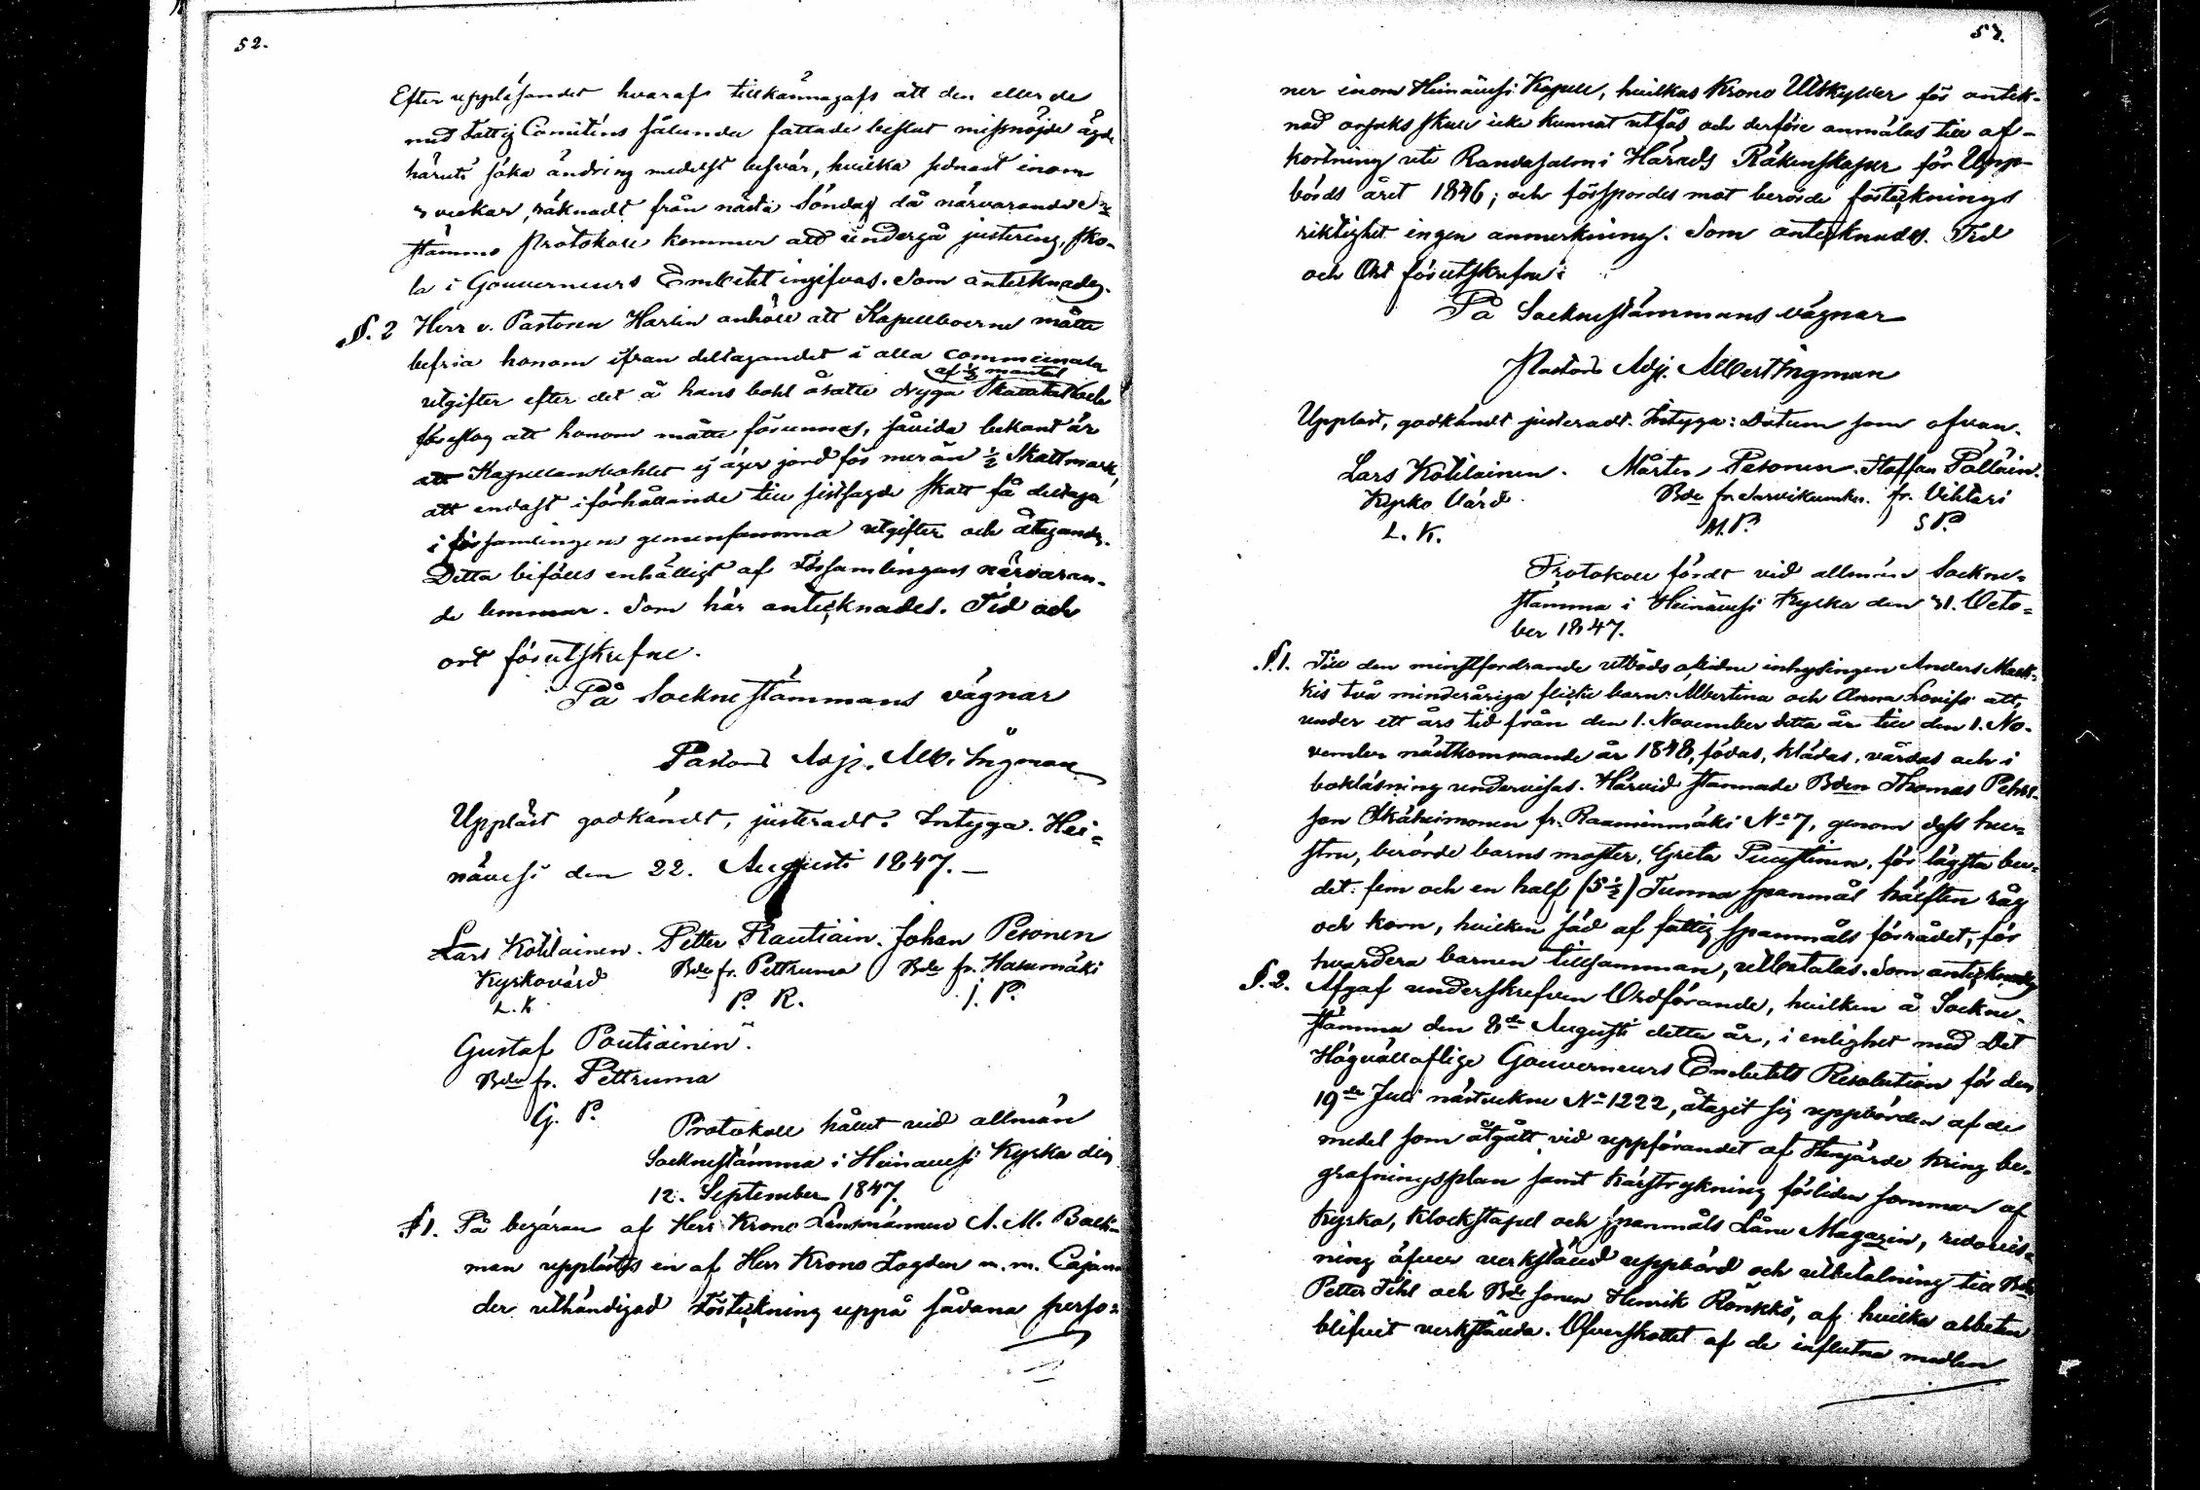 52.
Efter uppläsandet hvaraf tillkännagafs att den eller de
med Fattig Comitéens sålunda fattade beslut missnöjde ägde
häruti söka ändring medelst besvär, hvilka sednast inom
veckor, räknadt från nästa Söndag då närvarande
stämmo Protokoll kommer att undergå justering, sko-
la i Gouverneurs Embetet ingifvas. Som antecknades.
§. 2 Herr v. Pastoren Harlin anhöll att Kapellboerne måtte
befria honom ifrån deltagandet i alla communala
af ½ mantal
utgifter efter det å hans bohl åsatte dryga Skattetal och
föreslog att honom måtte förunnas, såvida bekant är
att Kapellansbohlet ej äger jord för mer än ½ Skattmark,
att endast i förhållande till sistsagde skatt få deltaga
i församlingens gemensamma utgifter och åtagande.
Detta bifölls enhälligt af Församlingens närvaran-
de lemmar. Som här antecknades. Tid och
ort förutskrefne.
På Sockne stämmans vägnar
Pastors Adj. Alb. Ingman
Uppläst godkändt, justeradt. Intyga. Hei-
nävesi den 22. Augusti 1847.
Lars Kötilainen. Petter Rautiain. Johan Pesonen
Kyrkovärd Bde fr. Pettruma Bde fr. Hasumäki
L. K. P. R. J. P.
Gustaf Poutiainen.
Bde fr. Pettruma
G. P.
Protokoll hållit vid allmän
Socknestämma i Heinävesi Kyrka den
12. September 1847.
§1. På begäran af Herr Krono Länsmannen A. M. Back-
man upplästes en af Herr Krono Fogden m. m. Cajan-
der uthändigad Förteckning uppå sådana perso-
53.
ner inom Heinävesi Kapell, hvilkas Krono Utskylder för anteck-
nad orsaks skull icke kunnat utfås och derföre anmälas till af-
kortning uti Randasalmi Härads Räkenskaper för Upp-
börds året 1846; och försspordes mot berörde förtecknings
riktighet ingen anmerkning. Som antecknades. Tid
och Ort förutskrefne:
På Socknestämmans vägnar
Pastors Adj. Albert Ingman
Uppläst, godkändt justeradt. Intyga: Datum som ofvan.
Lars Kötilainen. Mårten Pesonen. Staffan Pölläin.
Kyrko Värd Bde fr. Sarvikumbu. fr. Vihtari
L. K. M. P. S P.
Protokoll fördt vid allmän Sockne-
stämma i Heinävesi Kyrka den 31. Octo-
ber 1847.
§1. Till den minstfordrande utböds aflidne inhysingen Anders
två minderåriga flicke barn: Albertina och Anna Lovisa att,
under ett års tid från den 1. November detta år till den 1. No-
vember nästkommande år 1848, födas, klädas, vårdas och i
bokläsning undervisas. Härvid stannade Bden Thomas
son fr. Raaminmäki № 7, genom dess hus-
stru, berörde barns moster, Greta Puustinen, för lägsta bu-
det: fem och en half (5½) Tunna spanmål hälften råg
och korn, hvilken säd af fattig spanmåls förrådet, för
hvardera barnen tillsamman, utbetalas. Som antecknades
§. 2. Afgaf underskrefven Ordförande, hvilken å Sockne-
stämma den 8de Augusti detta år, i enlighet med Det
Högvällofliga Gouverneurs Embetets Resolution för den
19de Juli nästvekne № 1222, åtagit sig uppbörden af de
medel som åtgått vid uppförandet af Stengärde kring be-
grafningsplan samt förliden sommar af
Kyrka, Klockstapel och spanmåls Låne Magazin, redovis-
ning öfver verkställd uppbörd och utbetalning till Bde
Petter Tihl och Bde sonen Henrik Rönkkö, af hvilka arbeten
blifvit verkställda. Öfverskottet af de influtna medlen